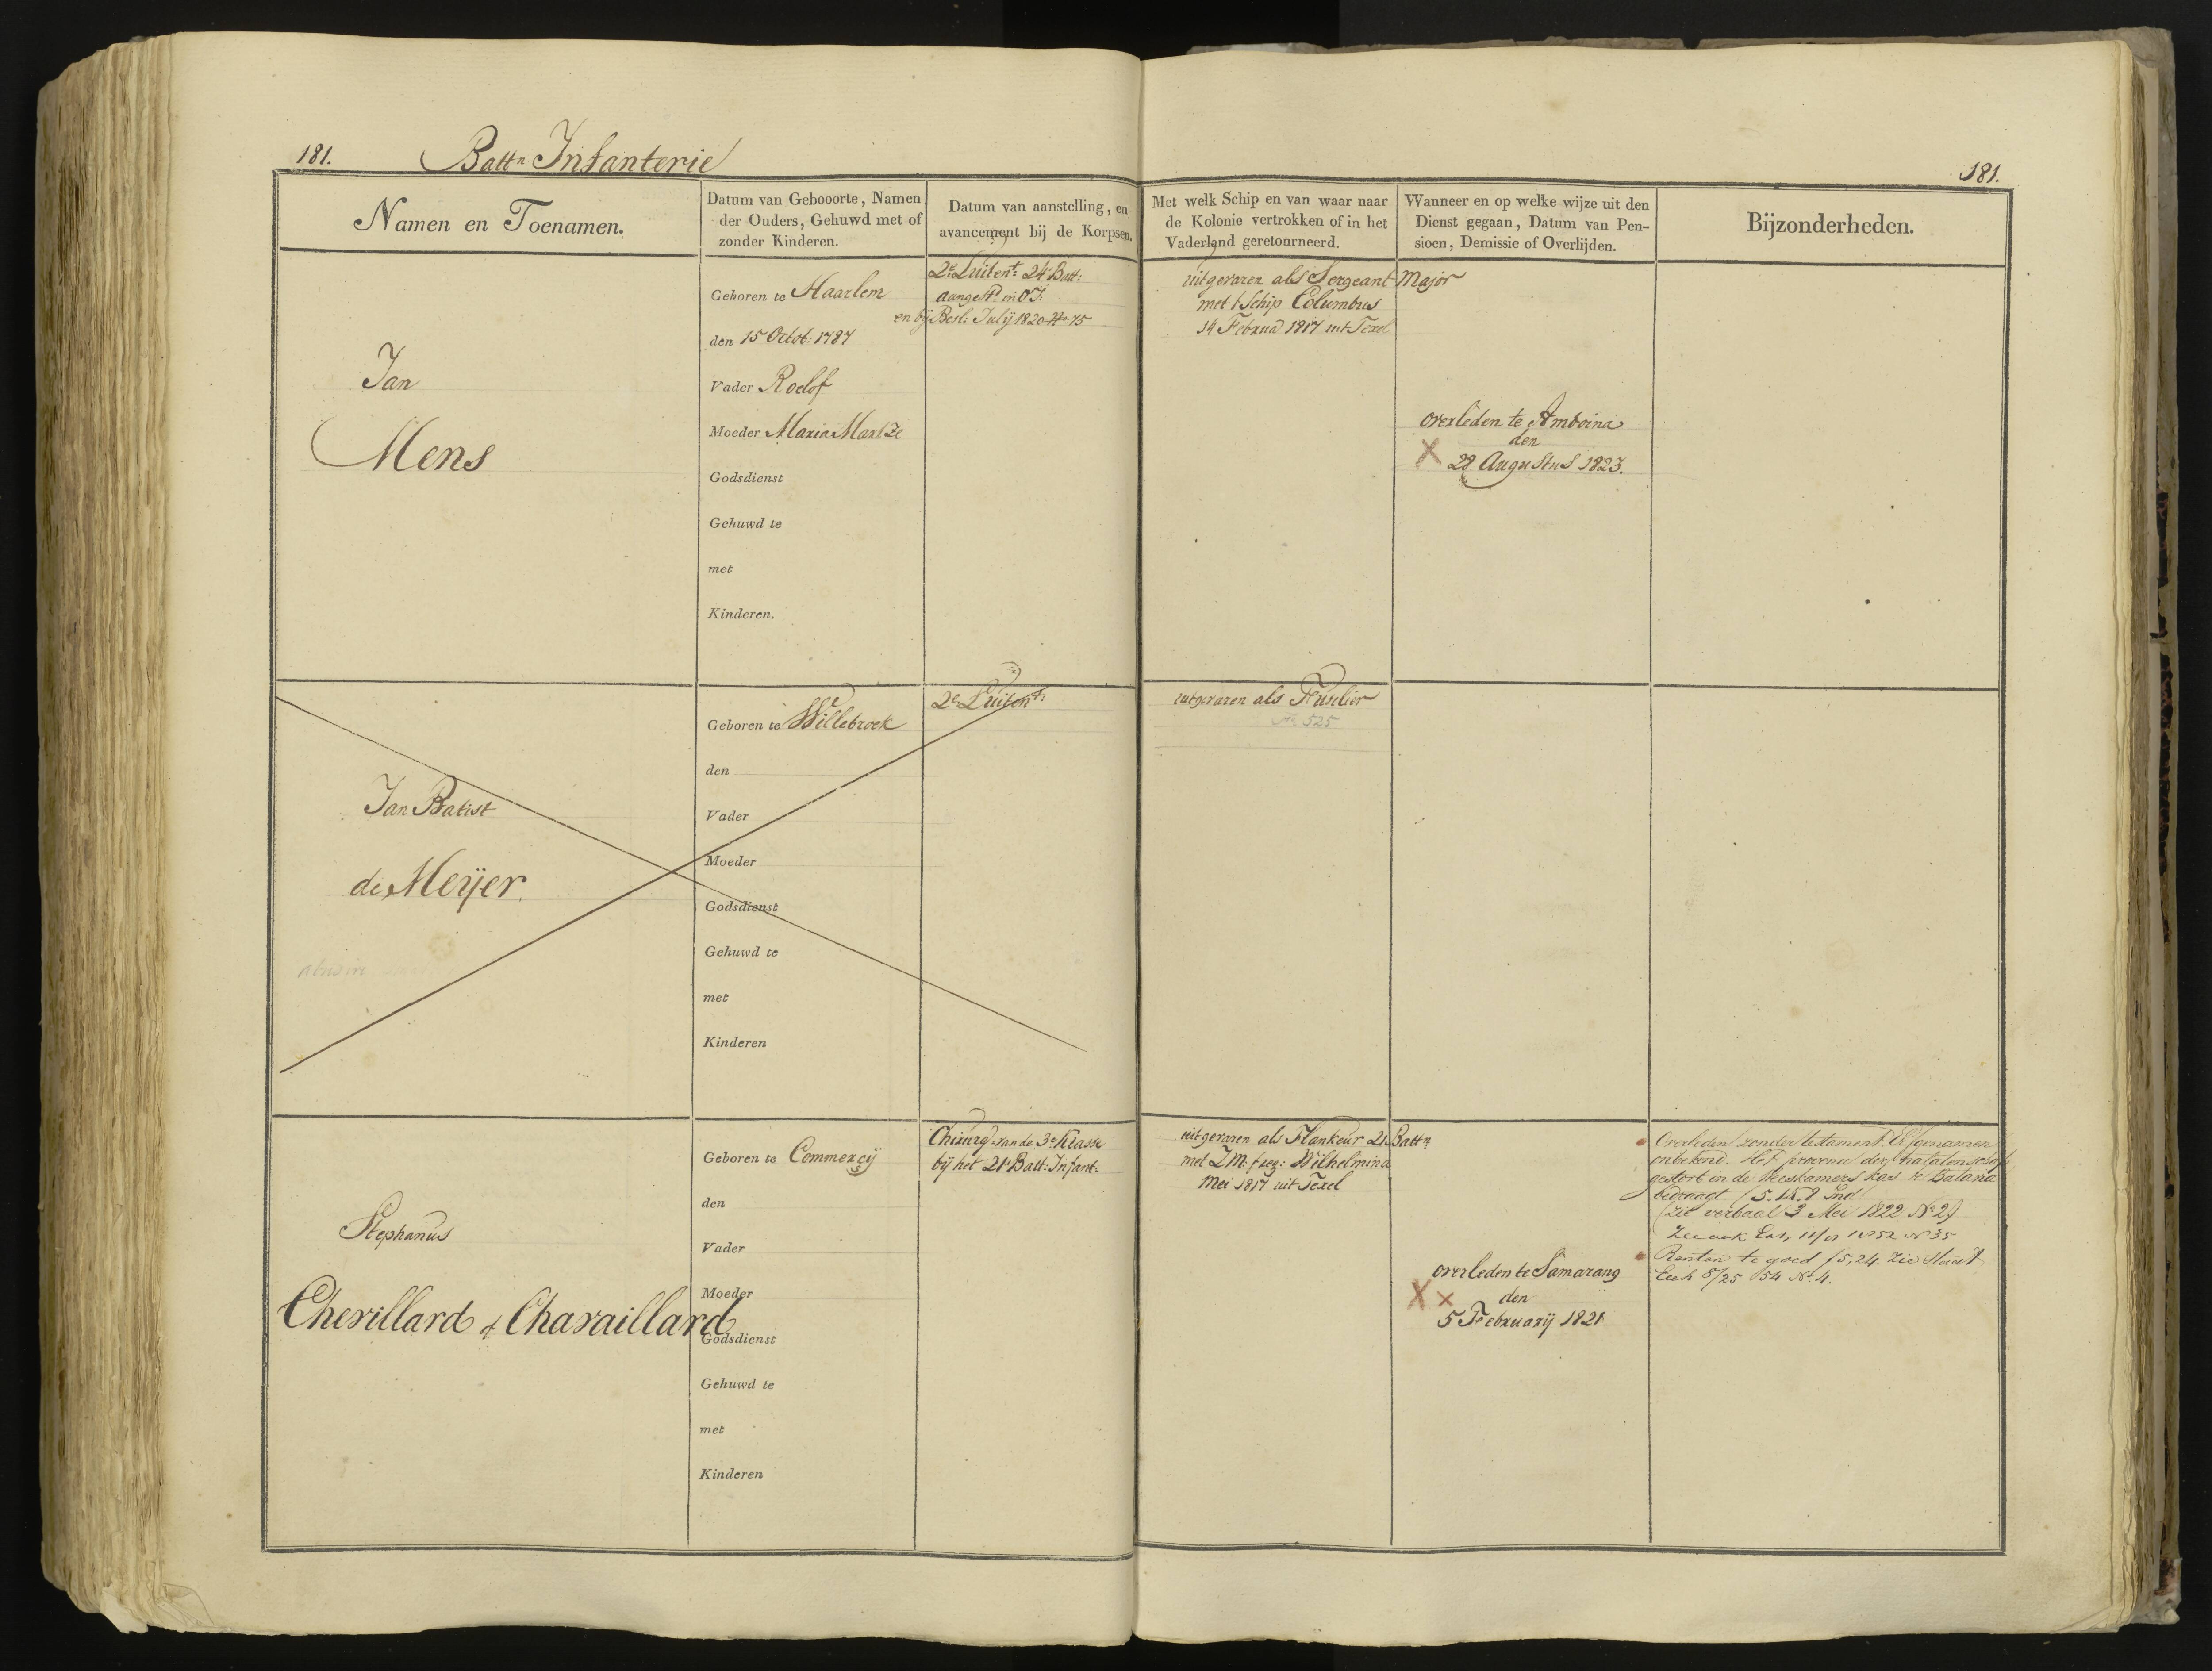 181.
Battn Infanterie
181.
Namen en Toenamen.
Datum van Gebooorte, Namen
der Ouders, Gehuwd met of
zonder Kinderen.
Datum van aanstelling, en
avancement bij de Korpsen.
Met welk Schip en van waar naar
de Kolonie vertrokken of in het
Vaderland geretourneerd.
Wanneer en op welke wijze uit den
Dienst gegaan, Datum van Pen-
sioen, Demissie of Overlijden.
Bijzonderheden.
Jan
Mens
Geboren te Haarlem
den 15 Octob: 1787
Vader Roelof
Moeder Maria
Godsdienst
Gehuwd te
met
Kinderen.
2e Luitent: 24e Batt:
aangest. in O I:
en bij Besl: Julij 1820 No 75
uitgevaren als Sergeant Major
met t Schip Columbus
14 Februa 1817 uit Texel
overleden te Amboina
den
X 28 Augustus 1823.
Jan Batist
de Meijer.
Geboren te Willebroek
den
Vader
Moeder
Godsdienst
Gehuwd te
met
Kinderen
2e Luitent:
uitgevaren als Fuselier
No 525
Stephanus
Chevillard of Chavaillard
Geboren te Commercij
den
Vader
Moeder
Godsdienst
Gehuwd te
met
Kinderen
Chirurg: van de 3e Klasse
bij het 21e Batt: Infant:
uitgevaren als Flankeur 21 Battn
met Z M: freg: Wilhelmina
Mei 1817 uit Texel
overleden te Samarang
X x den
5 Februarij 1821
Overleden zonder testament. Erfgenamen
onbekend. Het provenu der nalatenschap
gestort in de Weeskamers kas te Batavia
bedraagt f 5. Ind:
(zie verbaal 3 Mei 1822 No 2)
Zie ook No 35
Renten te goed f 5,24. Zie Staat
Exh 8/25 54 No. 4.